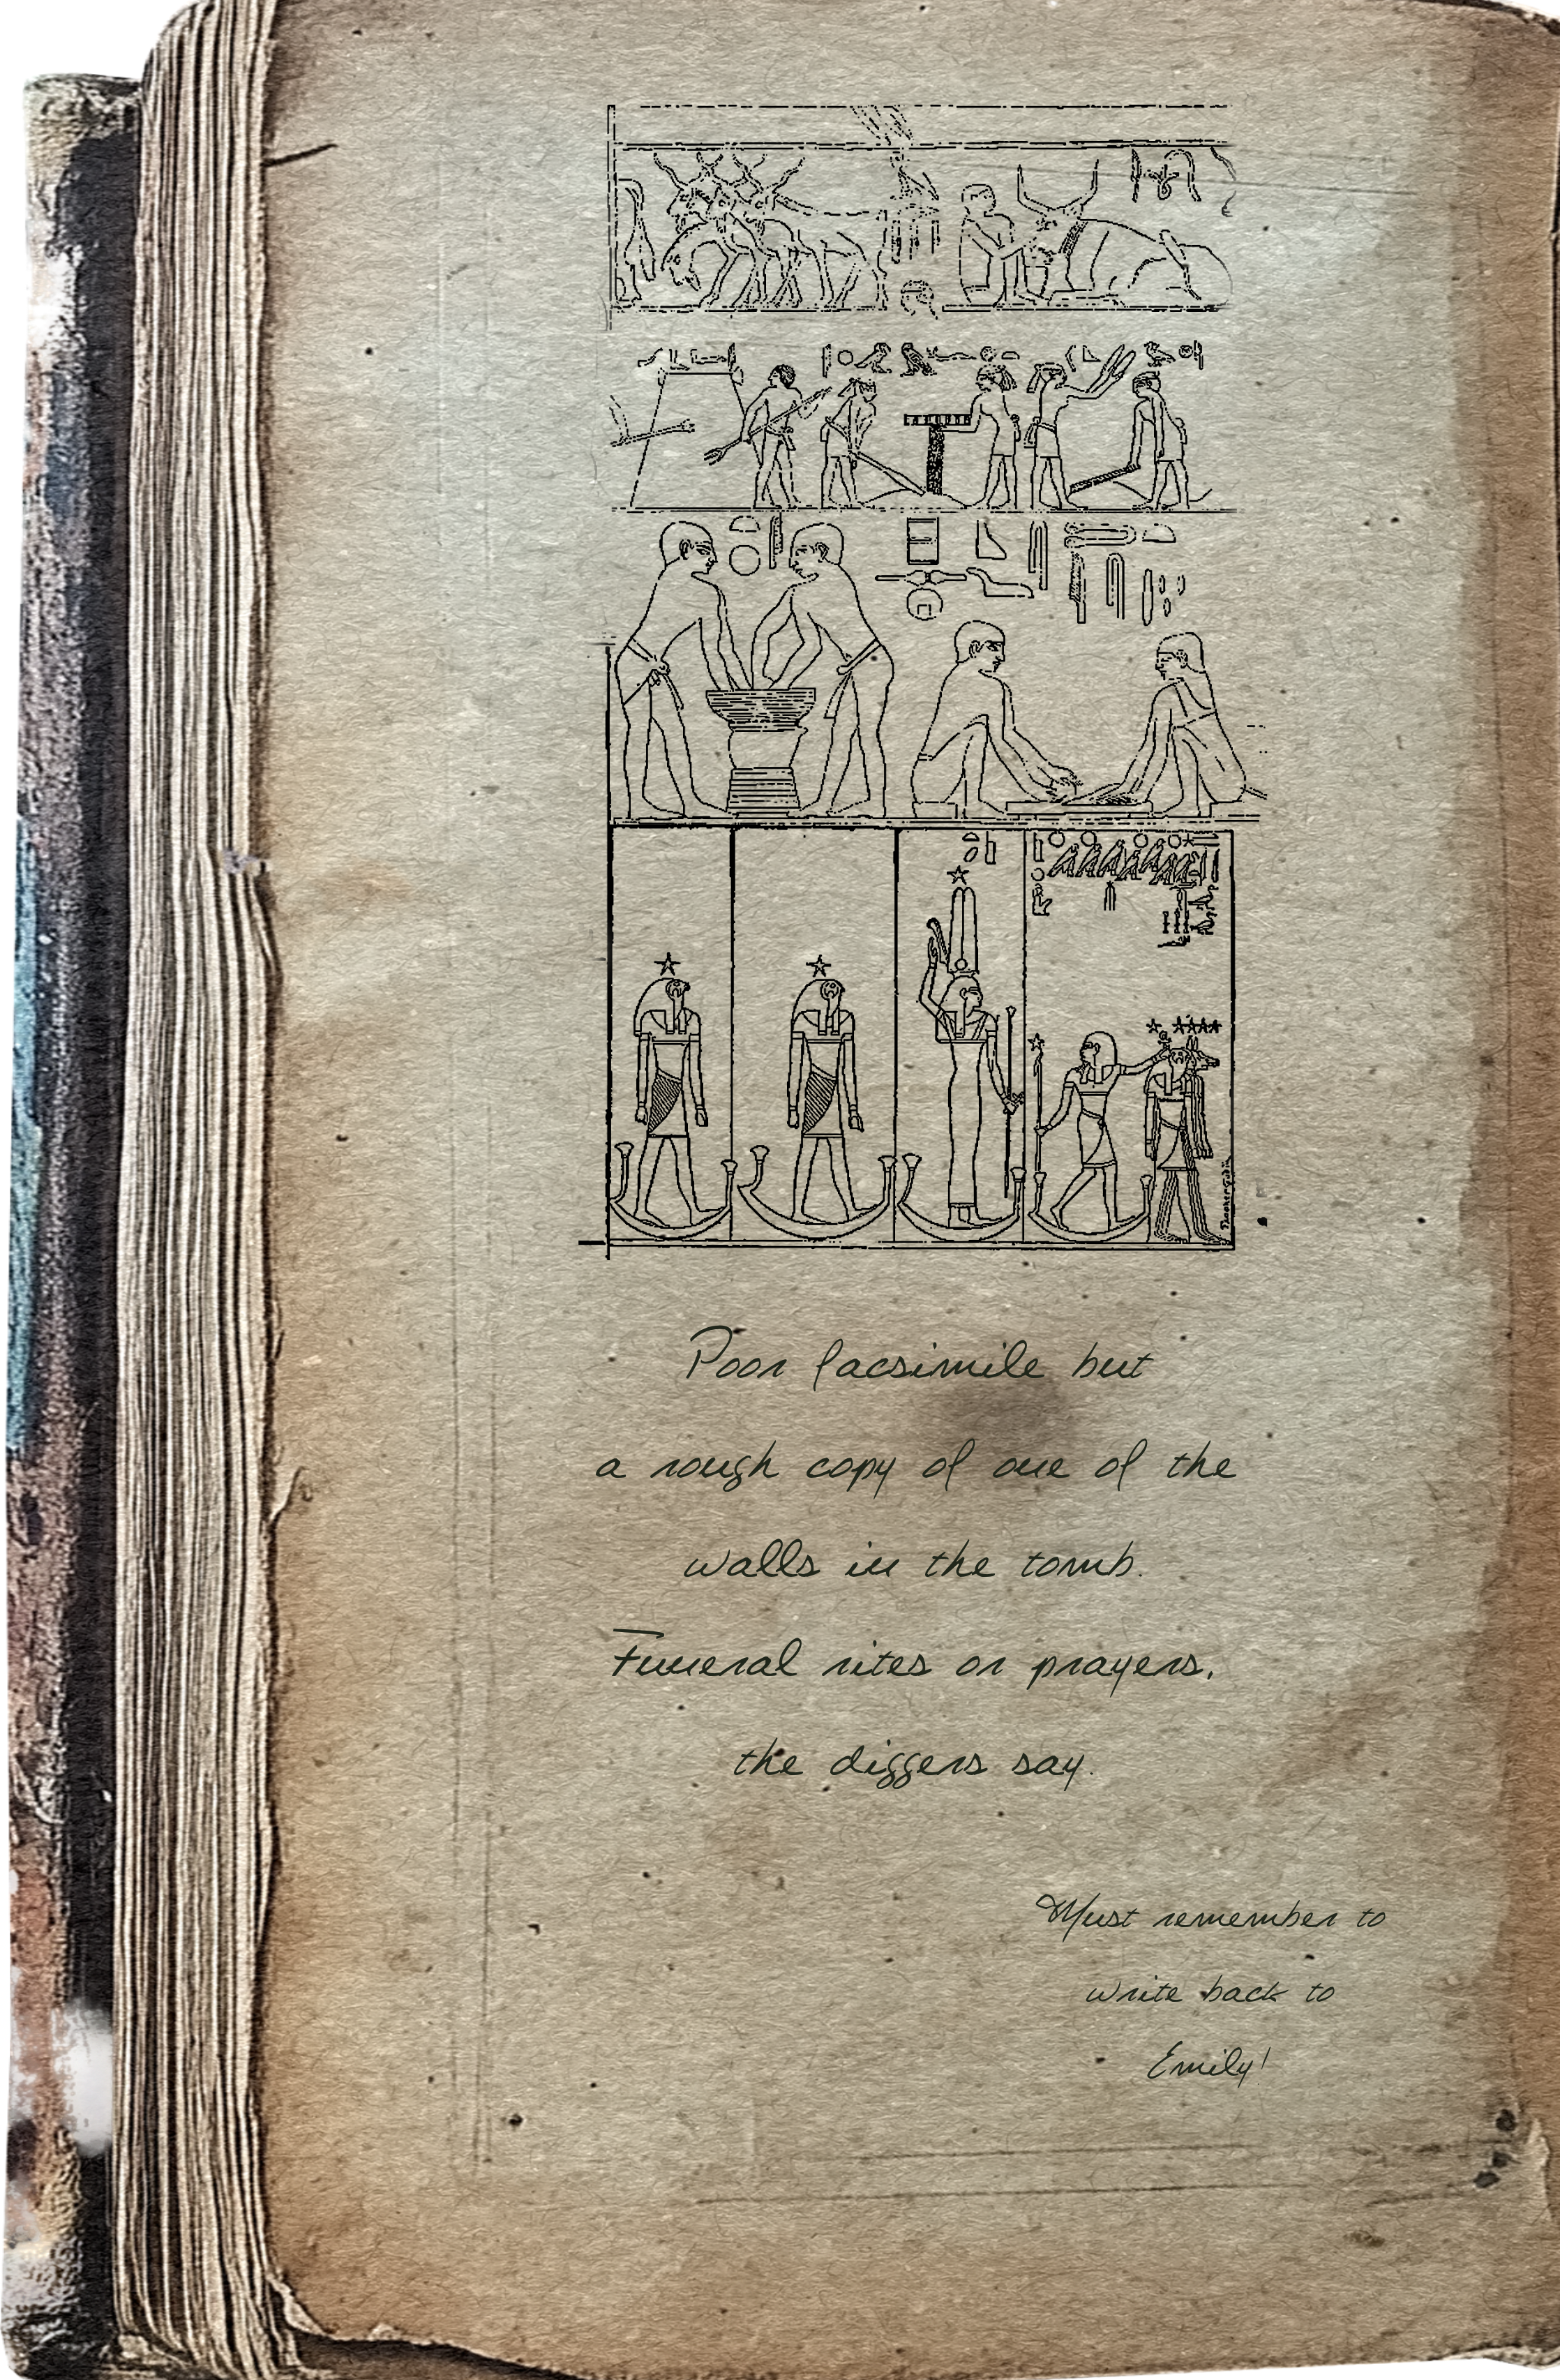 Poor facsimile but
a rough copy of one of the
walls in the tomb.
Funeral rites or prayers,
the diggers say.
Must remember to
write back to
Emily!